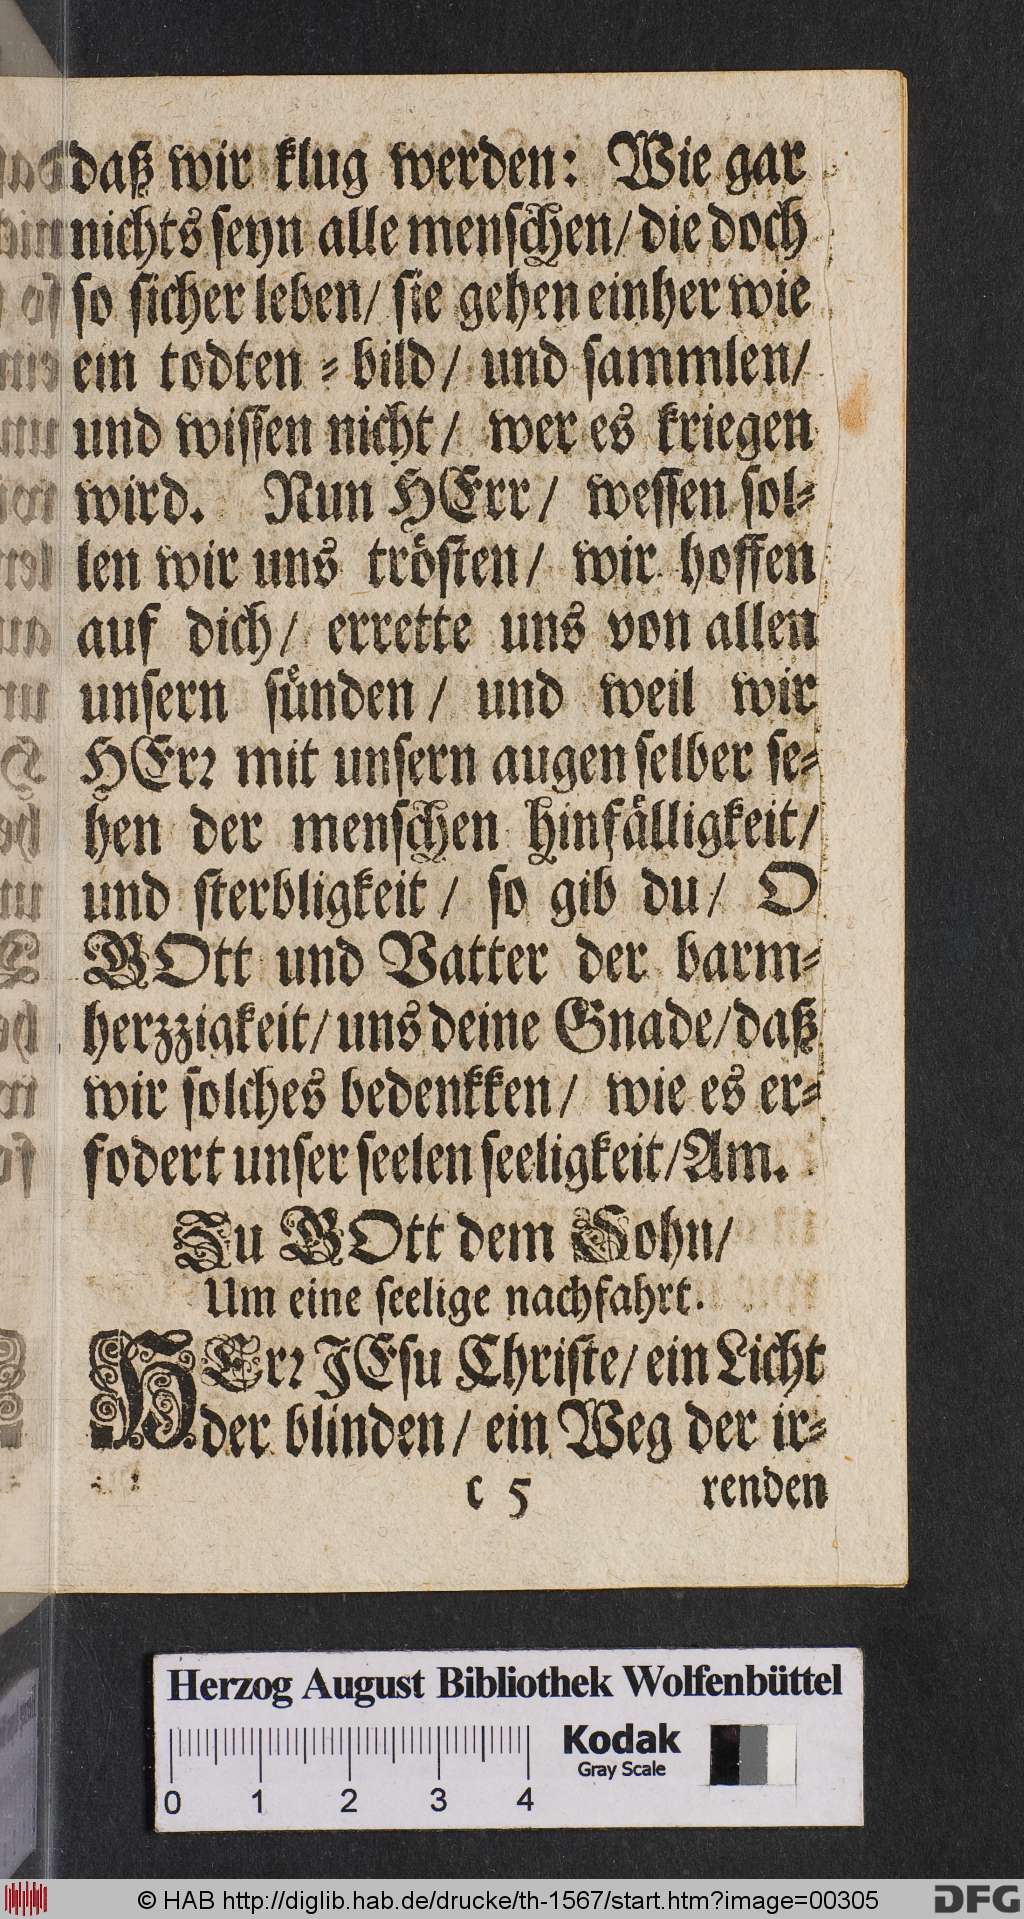 daß wir klug werden: Wie gar
nichts seyn alle menschen/ die doch
so sicher leben/ sie gehen einher wie
ein todten-bild/ und sammlen/
und wissen nicht/ wer es kriegen
wird. Nun HErr/ wessen sol-
len wir uns trösten/ wir hoffen
auf dich/ errette uns von allen
unsern sünden/ und weil wir
HErr mit unsern augen selber se-
hen der menschen hinfälligkeit/
und sterbligkeit/ so gib du/ O
GOtt und Vatter der barm-
herzzigkeit/ uns deine Gnade/ daß
wir solches bedenkken/ wie es er-
fodert unser seelen seeligkeit/ Am.
Zu GOtt dem Sohn/
Um eine seelige nachfahrt.
HErr JEsu Christe/ ein Licht
der blinden/ ein Weg der ir-
c 5 renden
Herzog August Bibliothek Wolfenbüttel
Kodak
Gray Scale
0 1 2 3 4
© HAB http://diglib.hab.de/drucke/th-1567/start.htm?image=00305
DFG